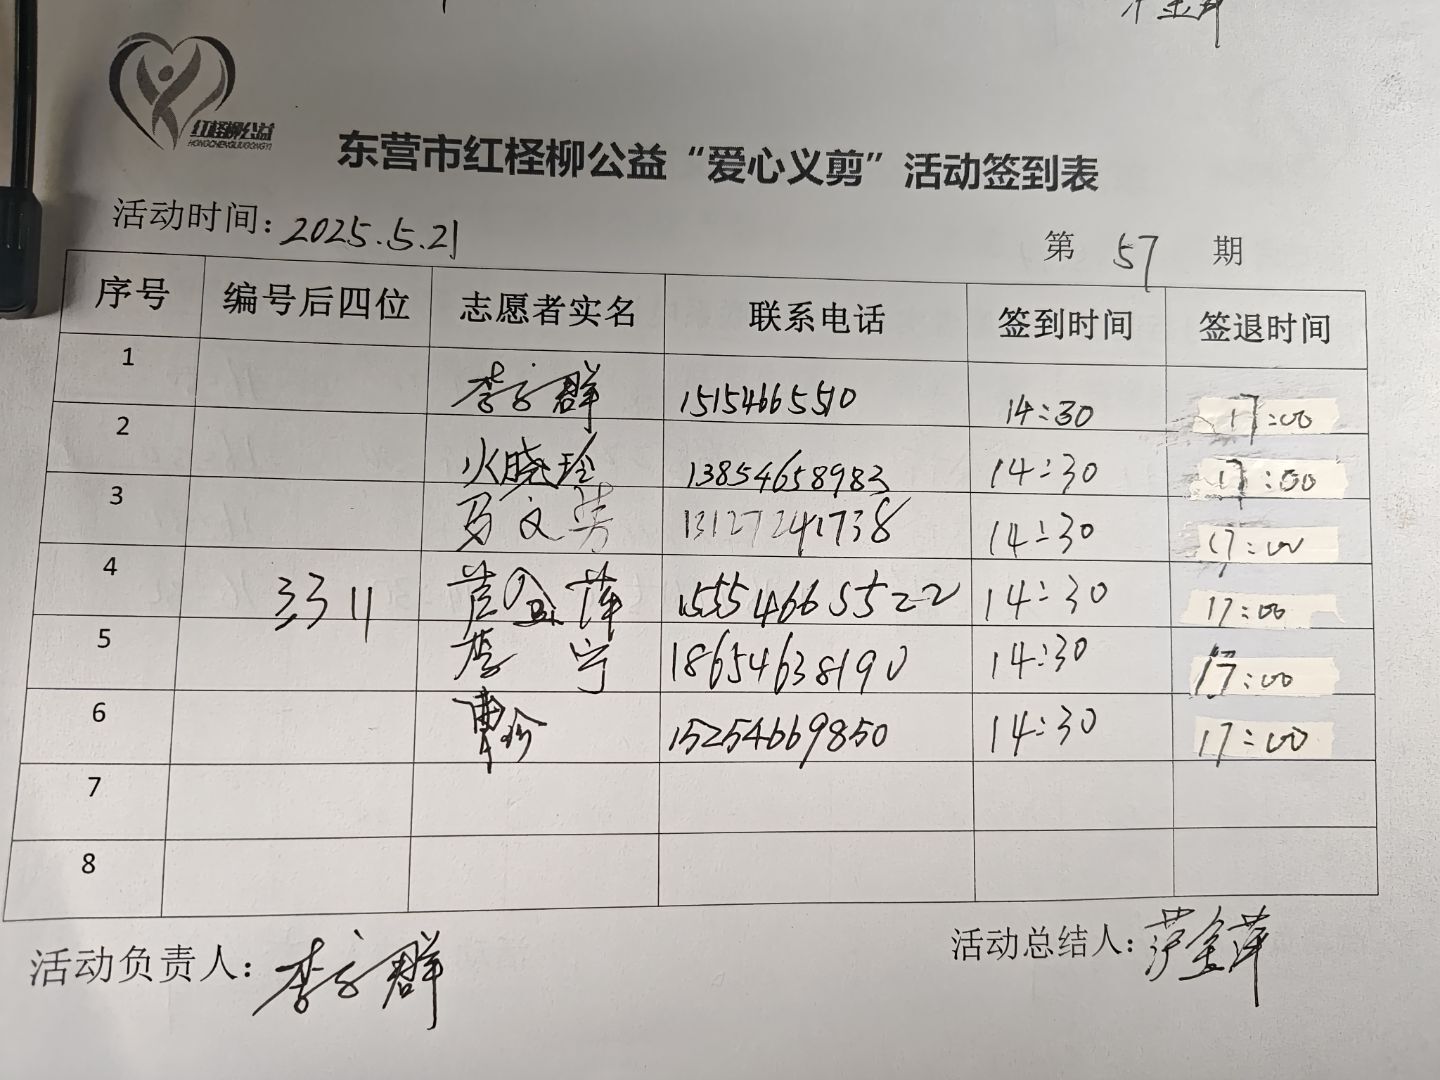 红柽柳公益
HONGCHENGLIUGONGYI
东营市红柽柳公益“爱心义剪”活动签到表
活动时间：2025.5.21
第 57 期
序号 编号后四位 志愿者实名 联系电话 签到时间 签退时间
1 李 群 15154665510 14:30 17:00
2 火晓玲 13854658983 14:30 17:00
3 马文芳 13127241738 14:30 17:00
4 3311 萍 15554665522 14:30 17:00
5 李宁 18654638190 14:30 17:00
6 曹珍 15254669850 14:30 17:00
7
8
活动负责人：李 群
活动总结人：金萍